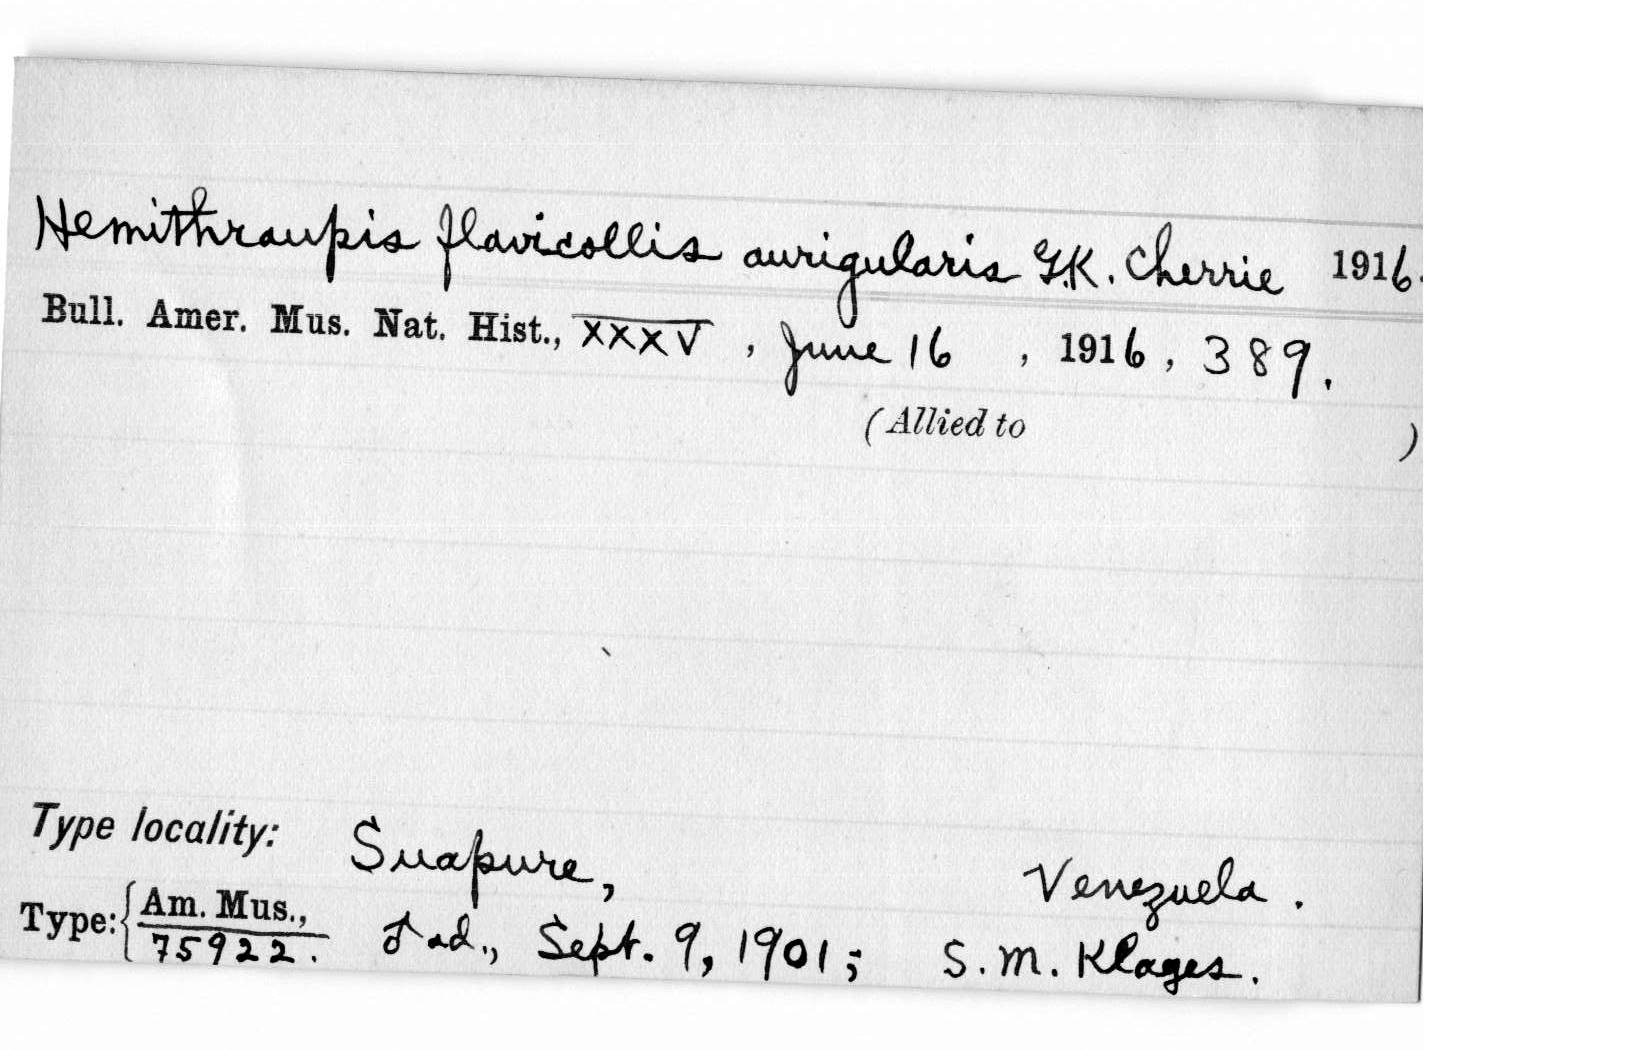 Hemithraupis flavicollis aurigularis G.K. Cherrie 1916.
Bull. Amer. Mus. Nat. Hist., XXXV, June 16, 1916, 389.
(Allied to )
Type locality: Suapure, Venezuela.
Type: { Am. Mus., 75922. ♂ ad., Sept. 9, 1901; S. M. Klages.